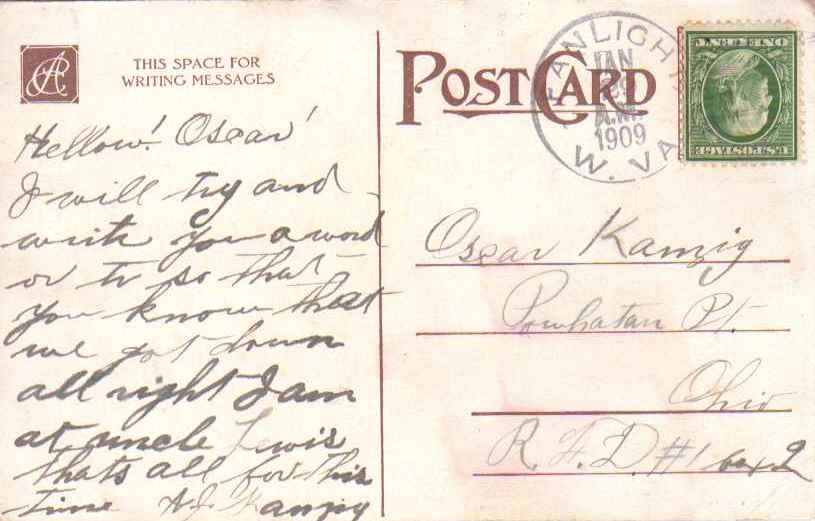 THIS SPACE FOR
WRITING MESSAGES
Hellow! Oscar!
I will try and
write you a word
or tr so that
you know that
we got down
all right I am
at uncle Lewis
thats all for this
time A.J. Kanzig
POST CARD
FANLIGHT
JAN
A.M.
1909
W. VA
U.S. POSTAGE
ONE CENT
Oscar Kanzig
Powhatan Pt.
Ohio
R. F. D. #1 box 2